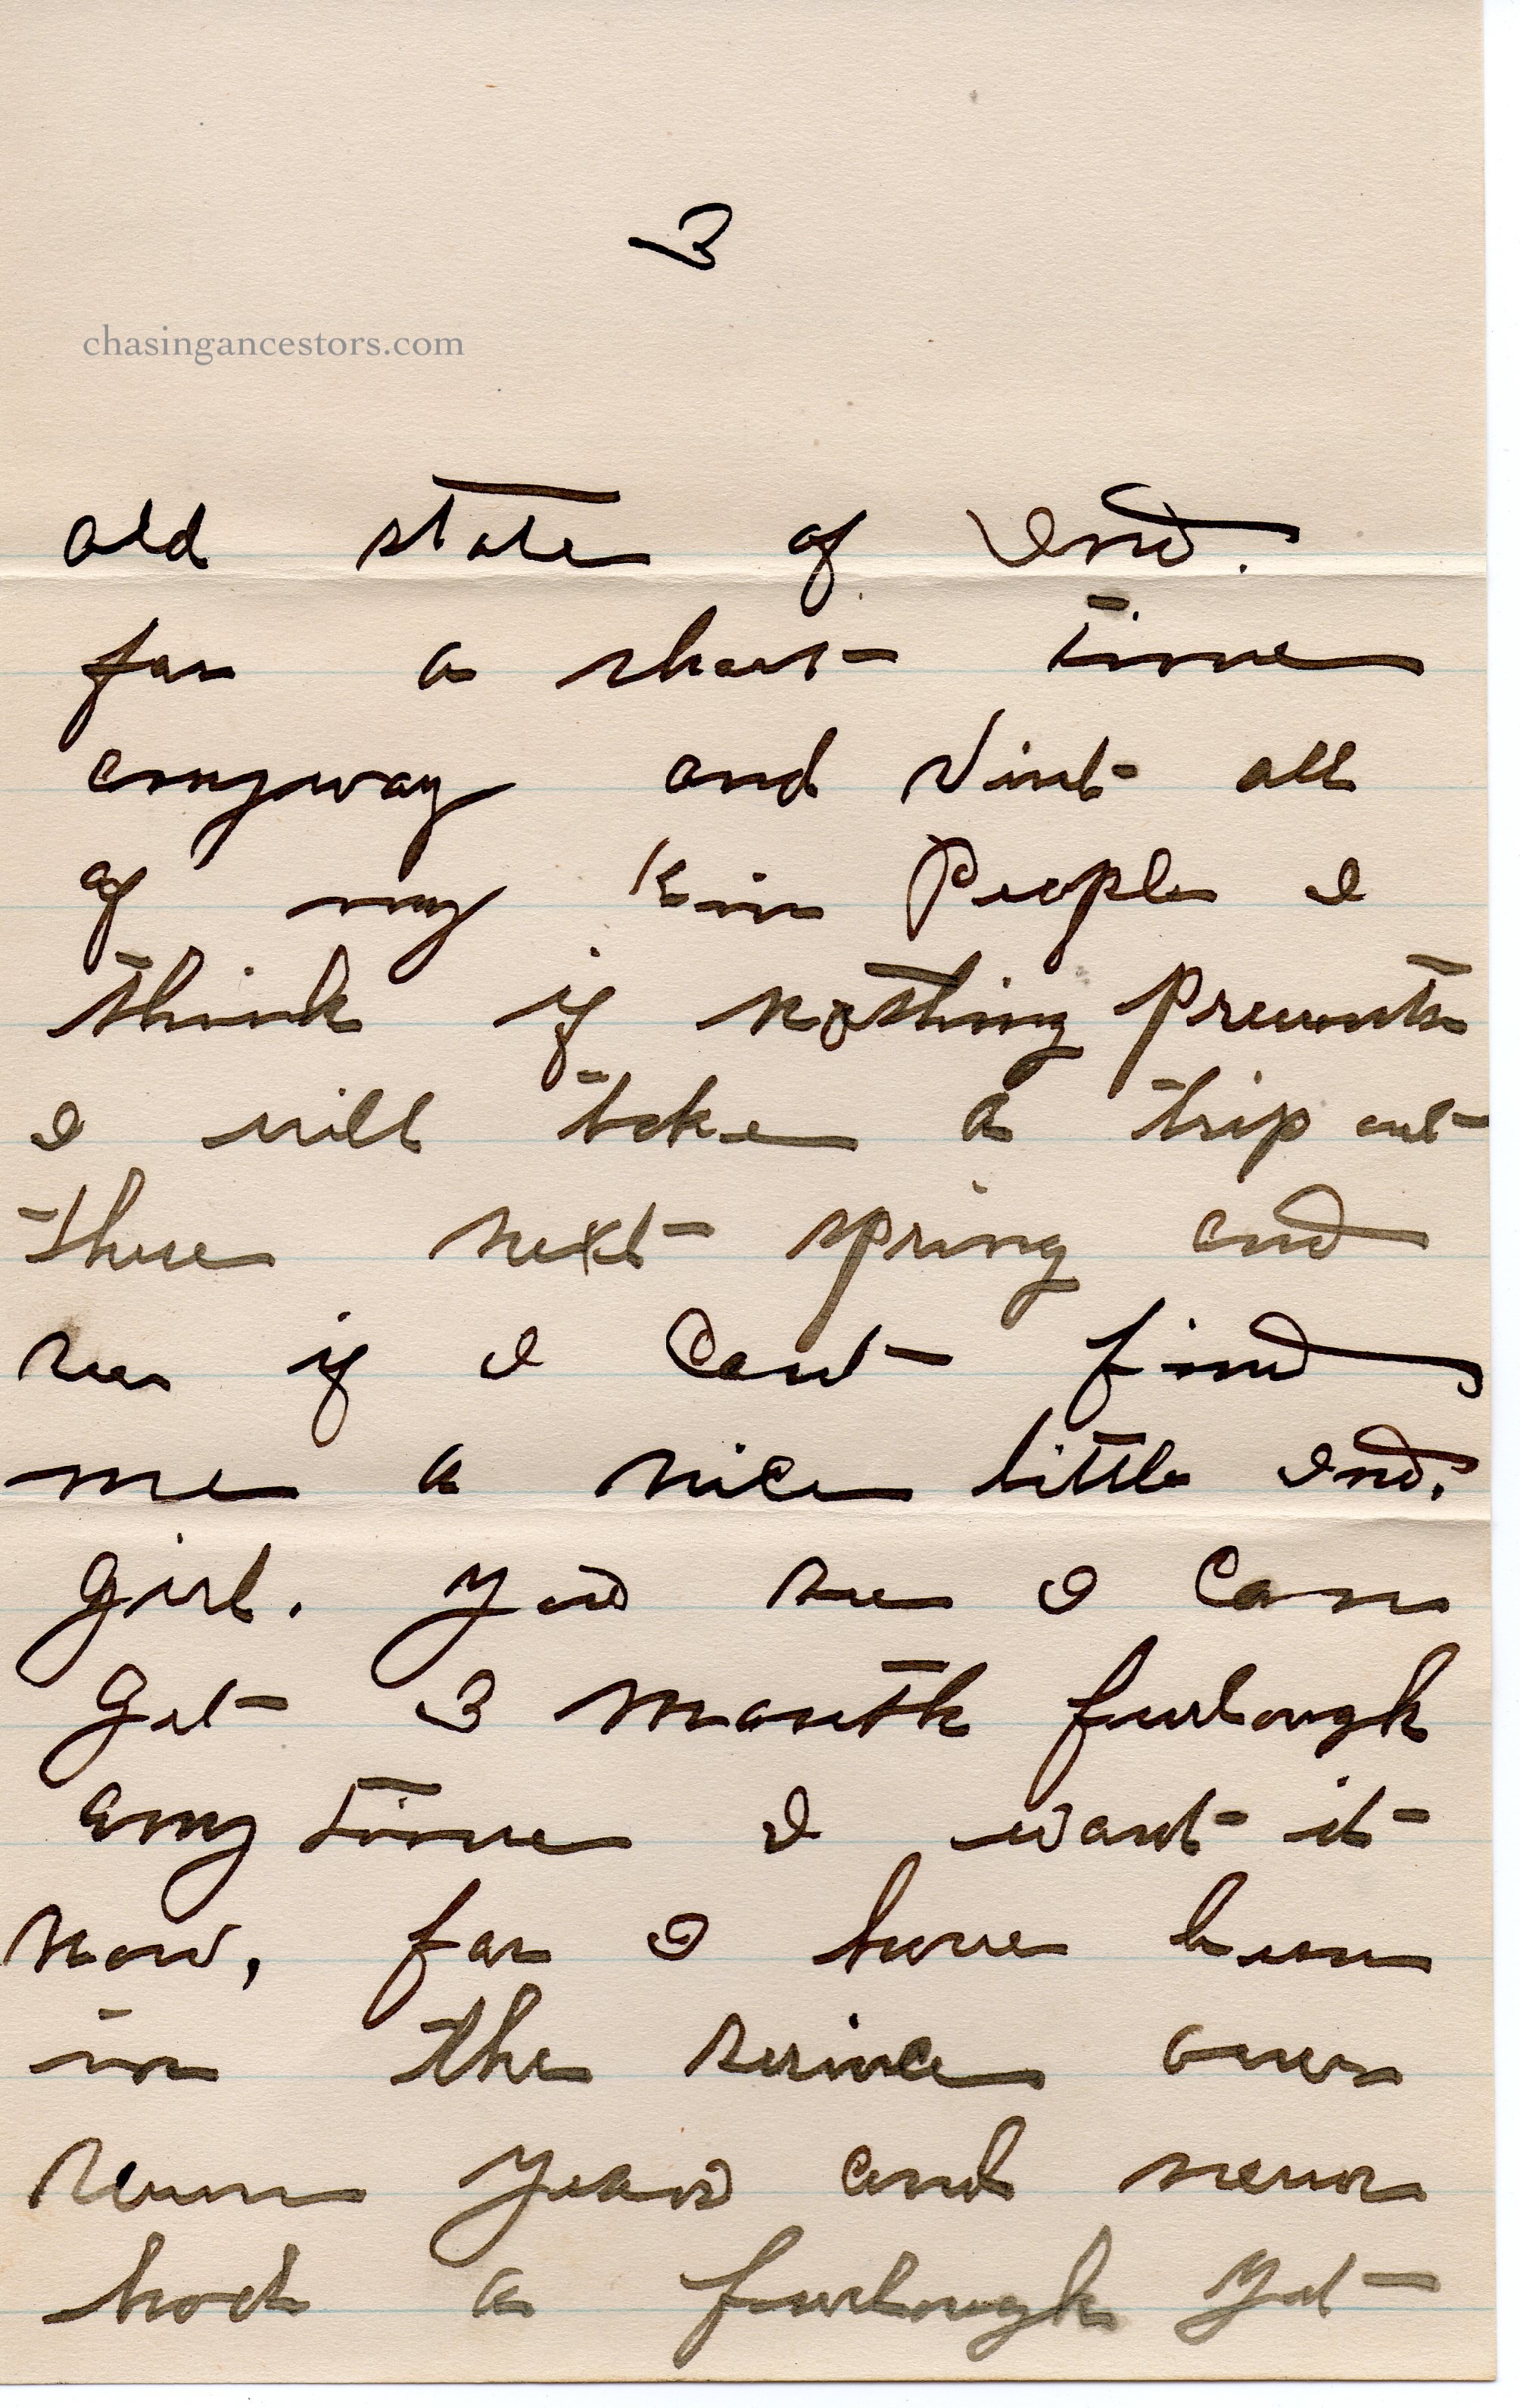 3
chasingancestors.com
old state of Ind.
for a short time
anyway and visit all
of my kin People I
think if nothing Prevents
I will take a trip out
there next spring and
see if I Cant find
me a nice little Ind.
girl. You see I Can
get 3 month furlough
any time I want it
now, for I have been
in the service over
seven years and never
had a furlough yet